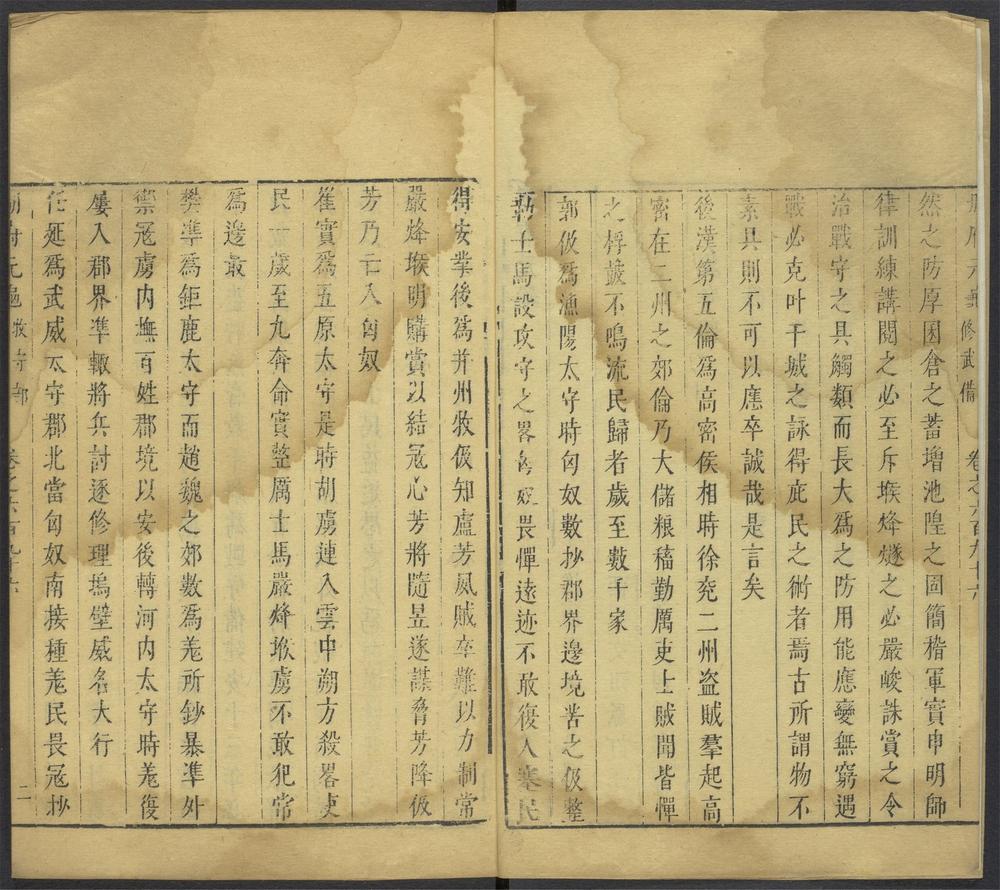 册府元龜修武備 卷之六百九十六
然之防厚囷倉之蓄增池隍之固簡稽軍實申明師
律訓練講閱之必至斥堠烽燧之必嚴峻誅賞之令
治戰守之具觸類而長大爲之防用能應變無窮遇
戰必克叶干城之詠得庇民之術者焉古所謂物不
素具則不可以應卒誠哉是言矣
後漢第五倫爲高密侯相時徐兖二州盜賊羣起高
密在二州之郊倫乃大儲粮穡勤厲吏士賊聞皆憚
之桴皷不鳴流民歸者歲至數千家
郭伋爲漁陽太守時匈奴數抄郡界邊境苦之伋整
勒士馬設攻守之畧匈奴畏憚遠迹不敢復入塞民
得安業後爲并州牧伋知盧芳夙賊卒難以力制常
嚴烽堠明購賞以結寇心芳將隨昱遂謀脅芳降伋
芳乃亡入匈奴
崔實爲五原太守是時胡虜連入雲中朔方殺畧吏
民一歲至九奔命實整厲士馬嚴烽堠虜不敢犯常
爲邊最
樊準爲鉅鹿太守而趙魏之郊數爲羗所鈔暴準外
禦寇虜内撫百姓郡境以安後轉河内太守時羗復
屢入郡界準輙將兵討逐修理塢壁威名大行
任延爲武威太守郡北當匈奴南接種羗民畏寇抄
册府元龜牧守部 卷之六百九十六 二